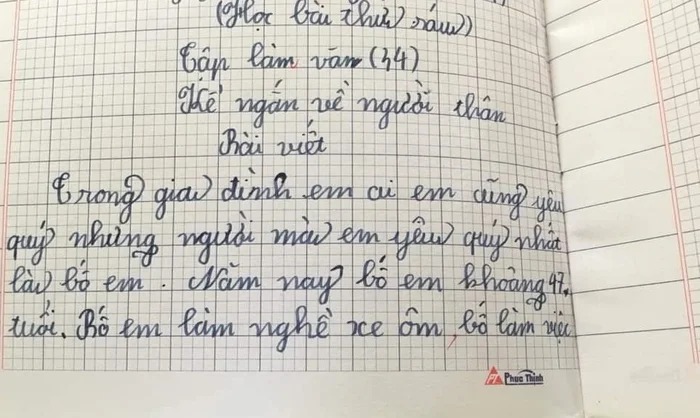 (Học bài thứ sáu)
Tập làm văn (34)
Kể ngắn về người thân
Bài viết
Trong gia đình em ai em cũng yêu
quý nhưng người mà em yêu quý nhất
là bố em. Năm nay bố em khoảng 47
tuổi. Bố em làm nghề xe ôm, bố làm việc
Phuc Thinh